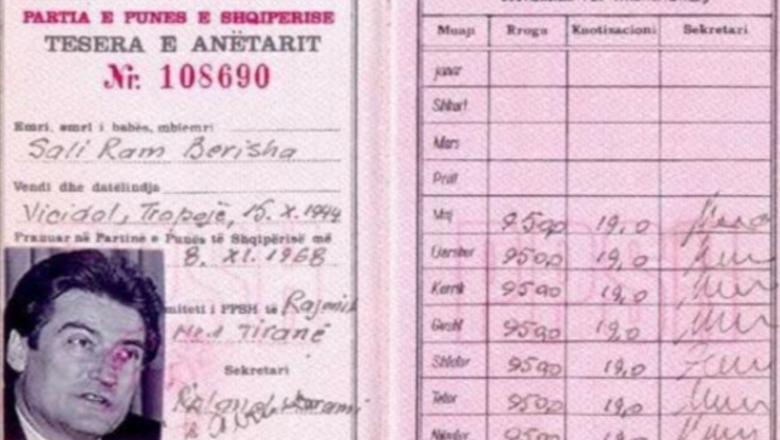 PARTIA E PUNES E SHQIPERISE
TESERA E ANËTARIT
Nr. 108690
Emri, emri i babës, mbiemri
Sali Ram Berisha
Vendi dhe datëlindja
Vicidol, Tropojë, 15.X.1944
Pranuar në Partinë e Punës të Shqipërisë më
8. XI. 1968
miteti i PPSH të Rajonit
Nr.1 Tiranë
Sekretari
Muaji Rroga Kuotizacioni Sekretari
Janar
Shkurt
Mars
Prill
Maj 950,0 19,0
Qershor 950,0 19,0
Korrik 950,0 19,0
Gusht 950,0 19,0
Shtator 950,0 19,0
Tetor 950,0 19,0
Nëntor 950,0 19,0